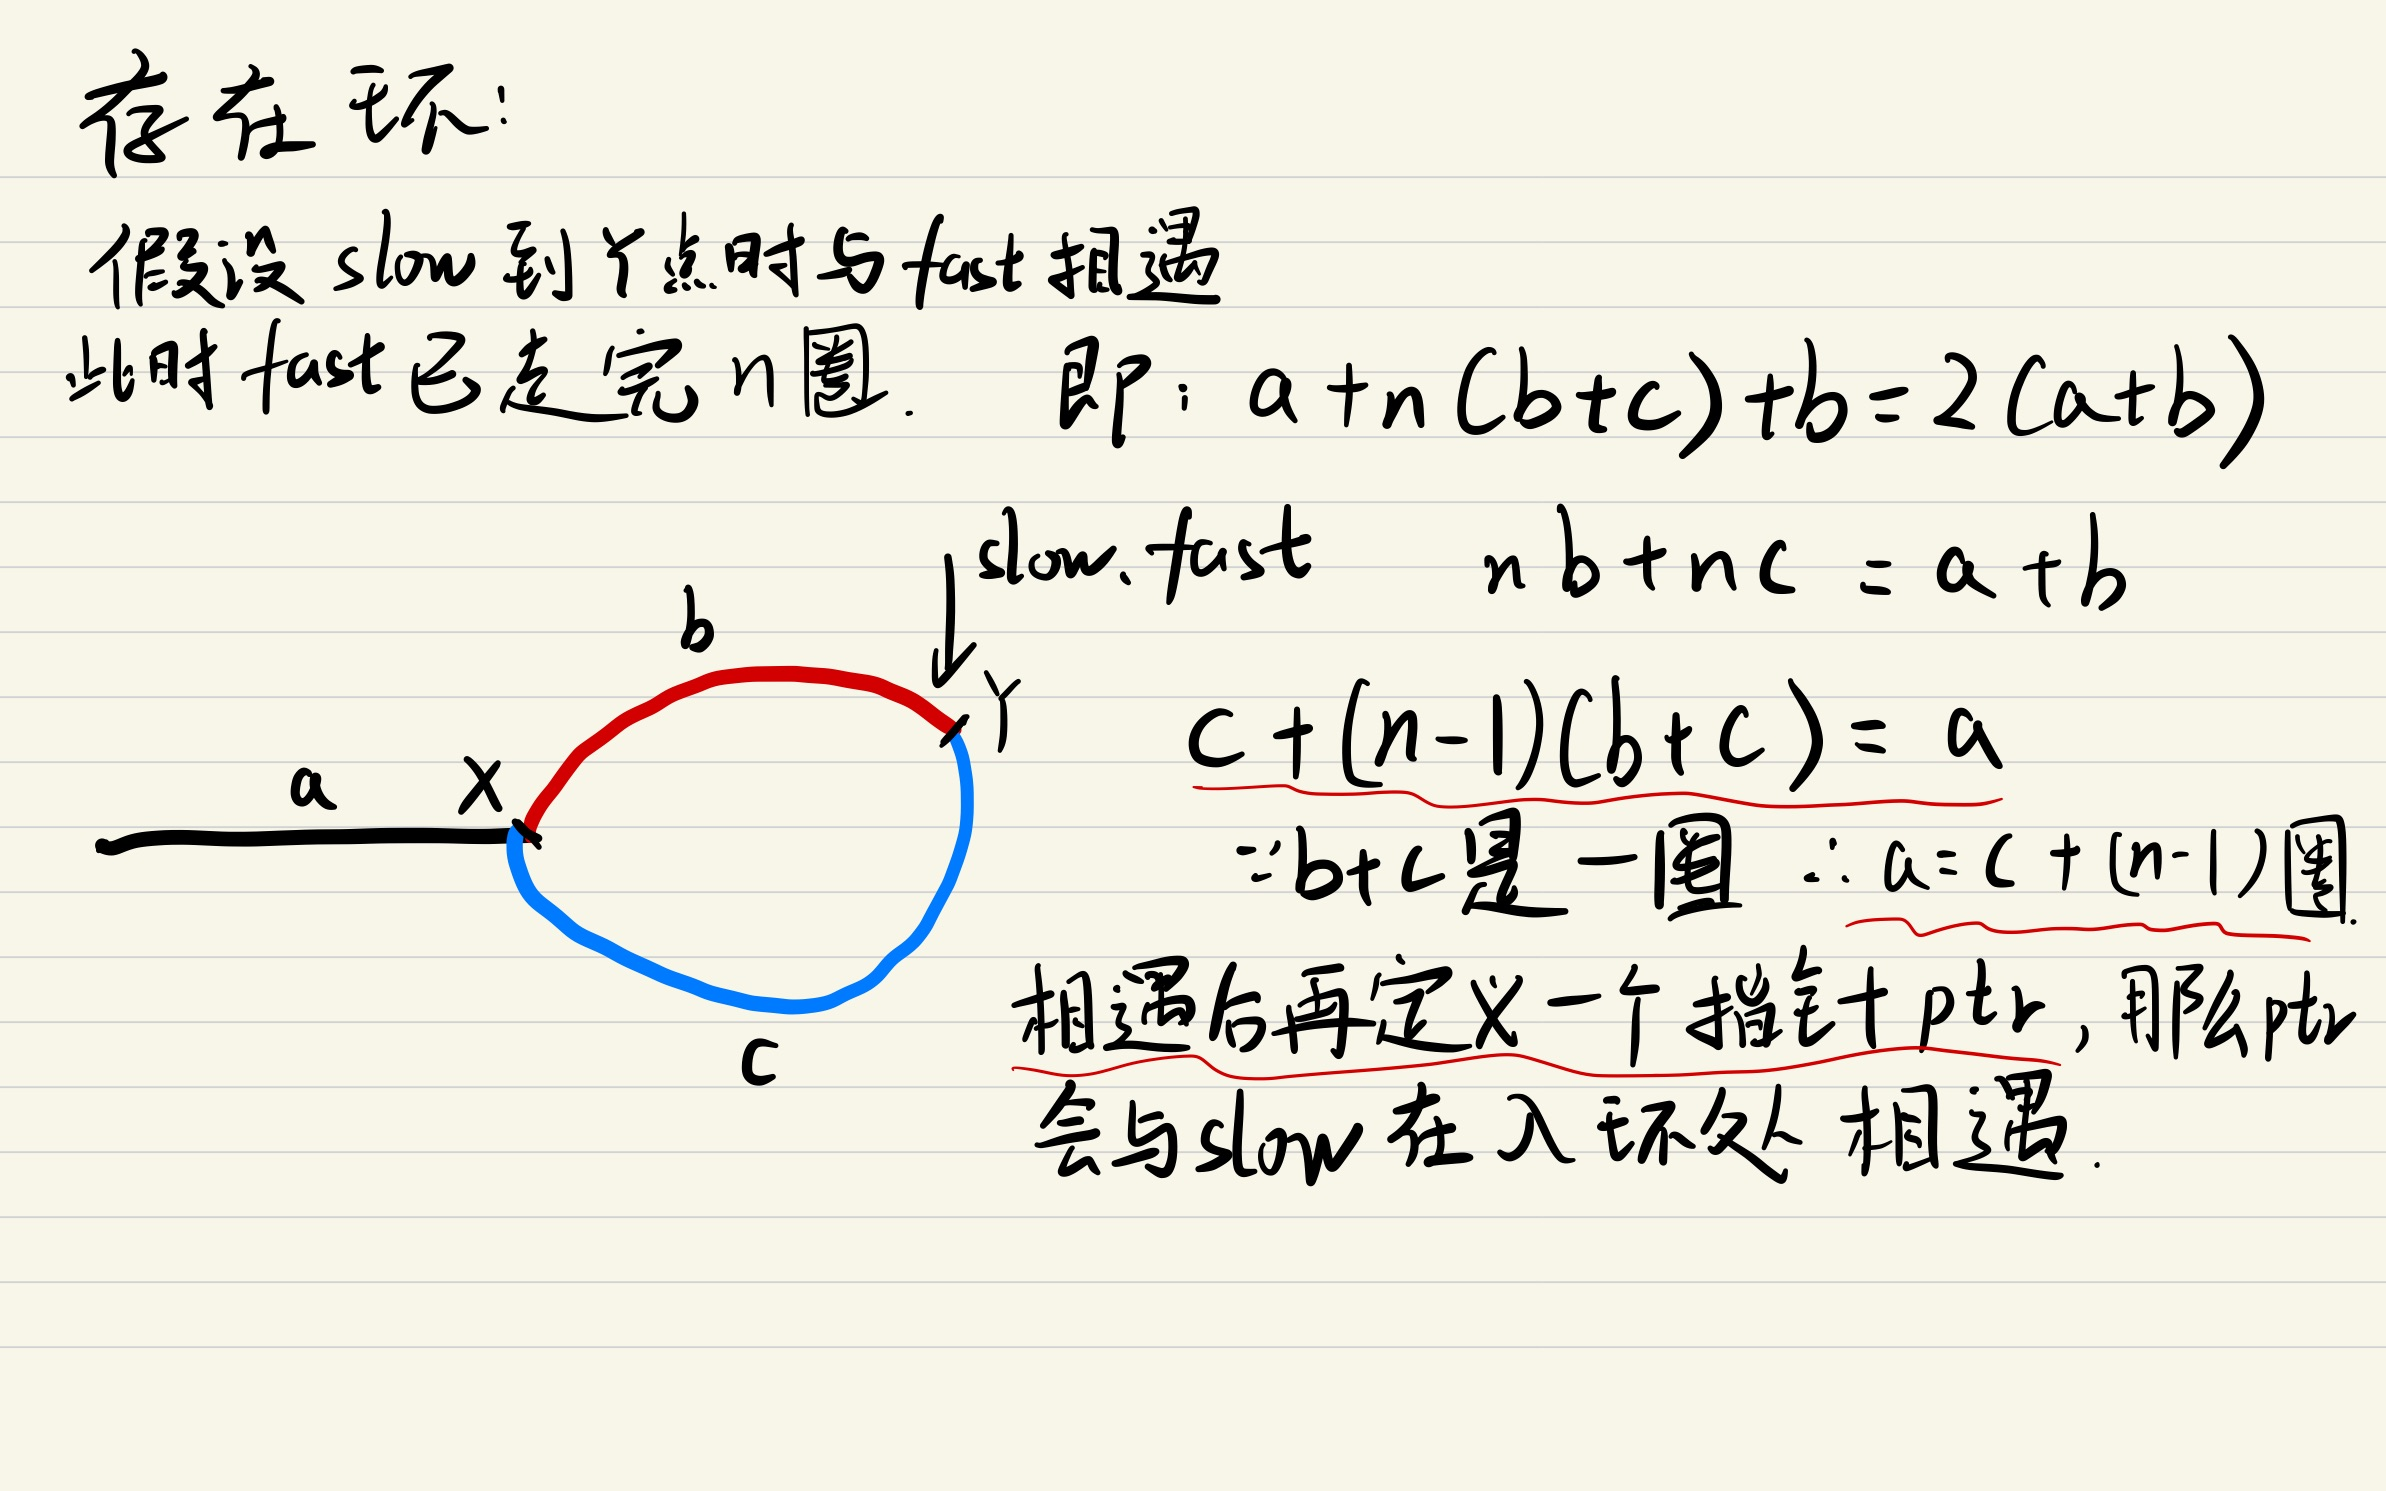 存在环:
假设 slow 到 Y 点时与 fast 相遇
此时 fast 已走完 n 圈. 即: a+n(b+c)+b=2(a+b)
slow. fast nb+nc = a+b
b
Y
c+(n-1)(b+c) = a
a X
∵b+c是一圈 ∴a=c+(n-1)圈.
相遇后再定义一个指针 ptr, 那么 ptr
c
会与 slow 在入环处相遇.